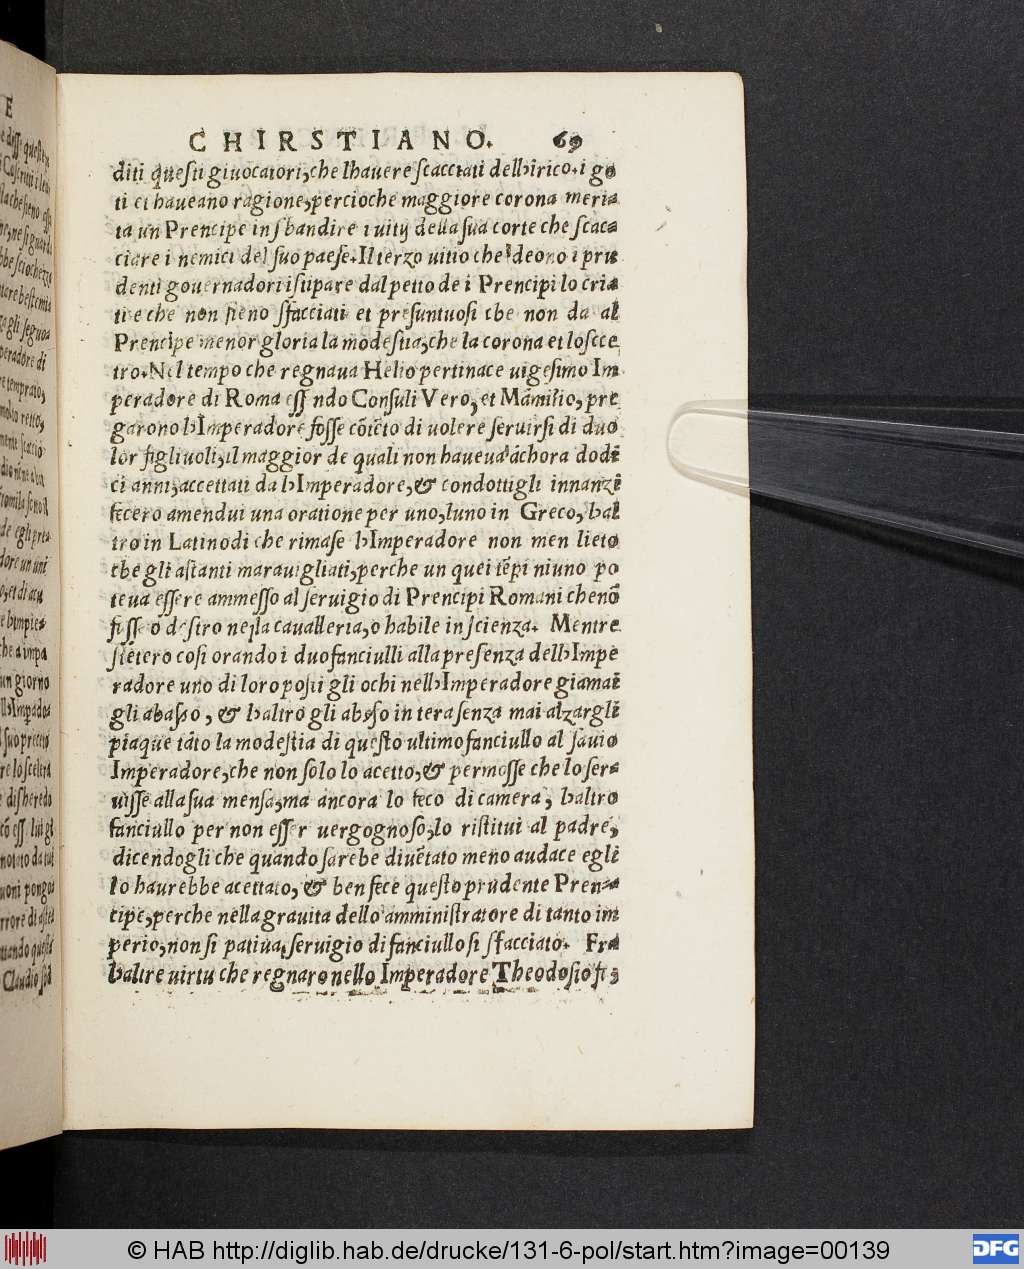 CHIRSTIANO. 69
diti questi giuocatori, che lhauere scacciati dellırico. i go
ti ci haueano ragione, percioche maggiore corona meri=
ta un Prencipe in sbandire i uitij della sua corte che scac=
ciare i nemici del suo paese. Il terzo uitio che deono i pru
denti gouernadori istirpare dal petto de i Prencipi lo
tie che non sieno sfacciati et presuntuosi che non da al
Prencipe menor gloria la modestia, che la corona et lo scce
tro. Nel tempo che regnaua Helio pertinace uigesimo Im
peradore di Roma ess ndo Consuli Vero, et Mamilio, pre
garono lƆImperadore fosse cōtēto di uolere seruirsi di duo
lor figliuoli, il maggior de quali non haueua áchora dodi
ci anni, accettati da lƆImperadore, & condottigli innanzi
fecero amendui una oratione per uno, luno in Greco, lƆal
tro in Latino di che rimase lƆImperadore non men lieto
che gli astanti marauigliati, perche un quei tēpi niuno po
teua essere ammesso al seruigio di Prencipi Romani che nō
fusse o destro nella caualleria, o habile in scienza. Mentre
stetero cosi orando i duo fanciulli alla presenza dellƆImpe
radore uno di loro posti gli ochi nellƆImperadore giamai
gli abasso, & lƆaltro gli abaso in tera senza mai alzargli
piaque tāto la modestia di questo ultimo fanciullo al sauio
Imperadore, che non solo lo acetto, & permosse che lo ser=
uisse alla sua mensa, ma ancora lo feco di camera, lƆaltro
fanciullo per non esser uergognoso, lo ristitui al padre,
dicendogli che quando sarebe diuētato meno audace egli
lo haurebbe acettato, & ben fece questo prudente Pren=
cipe, perche nella grauita dello amministratore di tanto im
perio, non si patiua, seruigio di fanciullo si sfacciato. Fra
lƆaltre uirtu che regnaro nello Imperadore Theodosio fu,
© HAB http://diglib.hab.de/drucke/131-6-pol/start.htm?image=00139
DFG